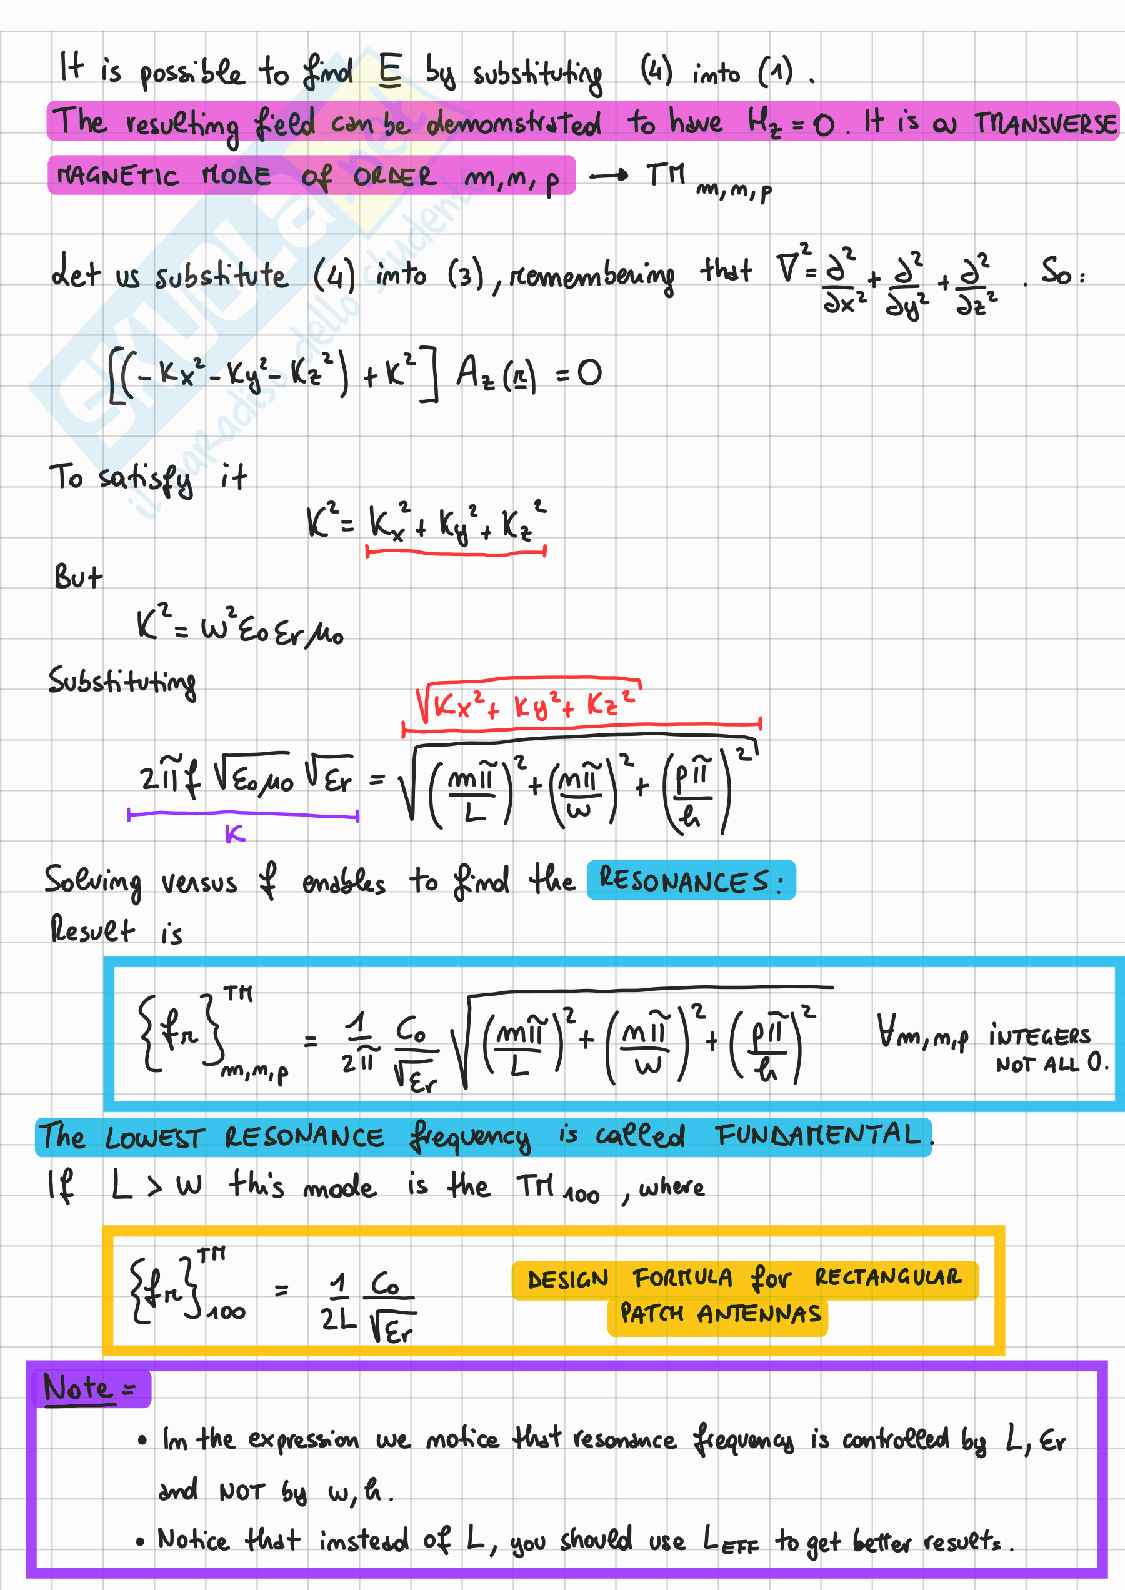 It is possible to find E by substituting (4) into (1).
The resulting field can be demonstrated to have Hz = 0. It is a TRANSVERSE
MAGNETIC MODE of ORDER m,n,p → TM m,n,p
Let us substitute (4) into (3), remembering that ∇² = ∂²/∂x² + ∂²/∂y² + ∂²/∂z². So:
[(-Kx² - Ky² - Kz²) + K²] Az(r) = 0
To satisfy it
K² = Kx² + Ky² + Kz²
But
K² = ω²ε0 εr μ0
Substituting
√(Kx² + Ky² + Kz²)
2πf √(ε0μ0) √εr = √((mπ/L)² + (nπ/W)² + (pπ/h)²)
K
Solving versus f enables to find the RESONANCES:
Result is
{fr}TM m,n,p = 1/2π C0/√εr √((mπ/L)² + (nπ/W)² + (pπ/h)²) ∀m,n,p INTEGERS
NOT ALL 0.
The LOWEST RESONANCE frequency is called FUNDAMENTAL.
If L > W this mode is the TM100, where
{fr}TM 100 = 1/2L C0/√εr DESIGN FORMULA for RECTANGULAR
PATCH ANTENNAS
Note =
• In the expression we notice that resonance frequency is controlled by L, εr
and NOT by w, h.
• Notice that instead of L, you should use LEFF to get better results.
SKUOLA.net
il paradiso dello studente